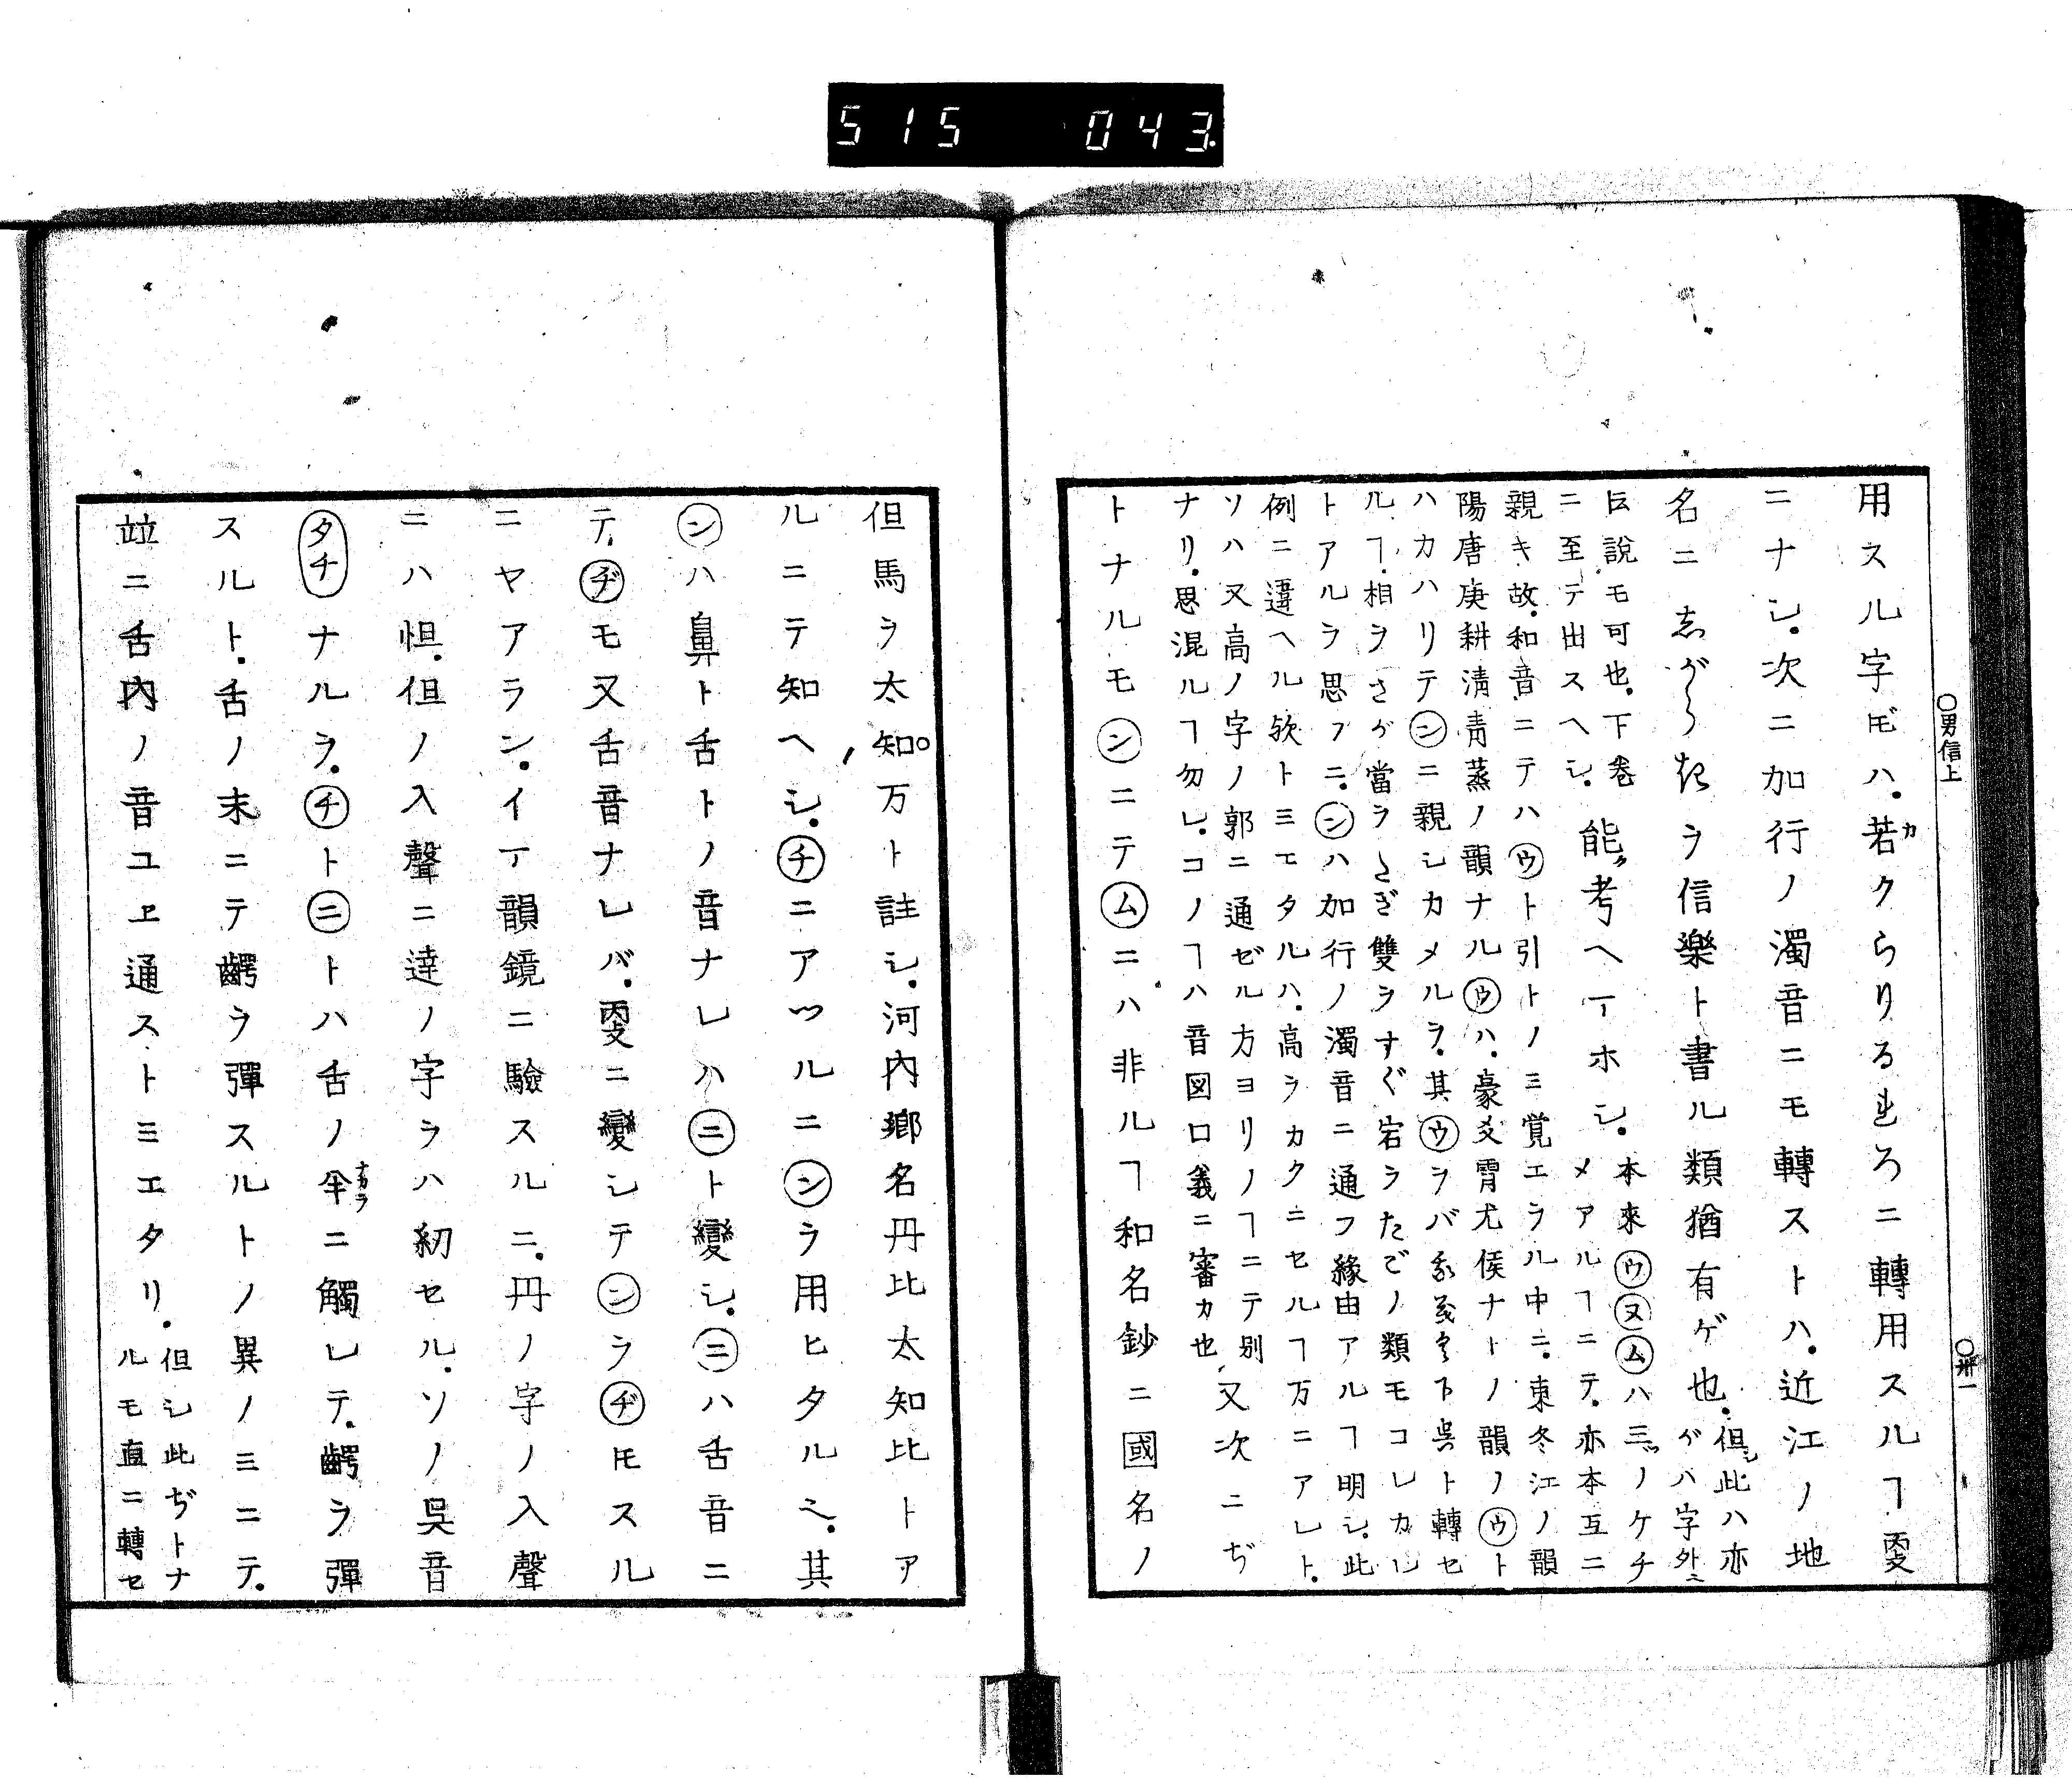 515 043
○男信上
○卅一
用スル字𪜈ハ.若クらりるれろニ轉用スルヿ㪅
ニナシ.次ニ加行ノ濁音ニモ轉ストハ.近江ノ地
名ニ志がらきヲ信樂ト書ル類猶有ゲ也.
但シ此ハ亦
がハ字外ニ
云說モ可也.下卷
ニ至テ出スヘシ.
能ク考ヘ丁ホシ.
本來ウヌムハ三ツノケチ
メアルヿニテ.亦本互ニ
親キ故.和音ニテハウト引トノミ覚エラル中ニ.東冬江ノ韻
陽唐庚耕淸靑蒸ノ韻ナルウハ.豪爻宵尤侯ナトノ韻ノウト
ハカハリテンニ親シカメルヲ.其ウヲバ
下呉ト轉セ
ルヿ.相ヲさが當ヲたぎ雙ヲすぐ宕ヲたでノ類モコレカレ
トアルヲ思フニ.ンハ加行ノ濁音ニ通フ緣由アルヿ明シ.此
例ニ違ヘル欤トミエタルハ.高ヲカクニセルヿ万ニアレト.
ソハ又高ノ字ノ郭ニ通ゼル方ヨリノヿニテ別
ナリ.思混ルヿ勿レ.コノヿハ音図口義ニ審カ也
又次ニぢ
トナルモンニテムニハ非ルヿ和名鈔ニ國名ノ
但馬ヲ太知万ト註シ.河内鄕名丹比太知比トア
ルニテ知ヘシ.チニアツルニンヲ用ヒタル也.其
ンハ鼻ト舌トノ音ナレハニト變シ.ニハ舌音ニ
テ.ヂモ又舌音ナレバ.㪅ニ變シテンヲヂ𪜈スル
ニヤアラン.イテ韻鏡ニ驗スルニ.丹ノ字ノ入聲
ニハ怛.但ノ入聲ニ達ノ字ヲハ紉セル.ソノ呉音
タチナルヲ.チトニトハ舌ノ半ニ觸レテ.齶ヲ彈
スルト.舌ノ末ニテ齶ヲ彈スルトノ異ノミニテ.
竝ニ舌内ノ音ユヱ通ストミエタリ.
但シ此ぢトナ
ルモ直ニ轉セ